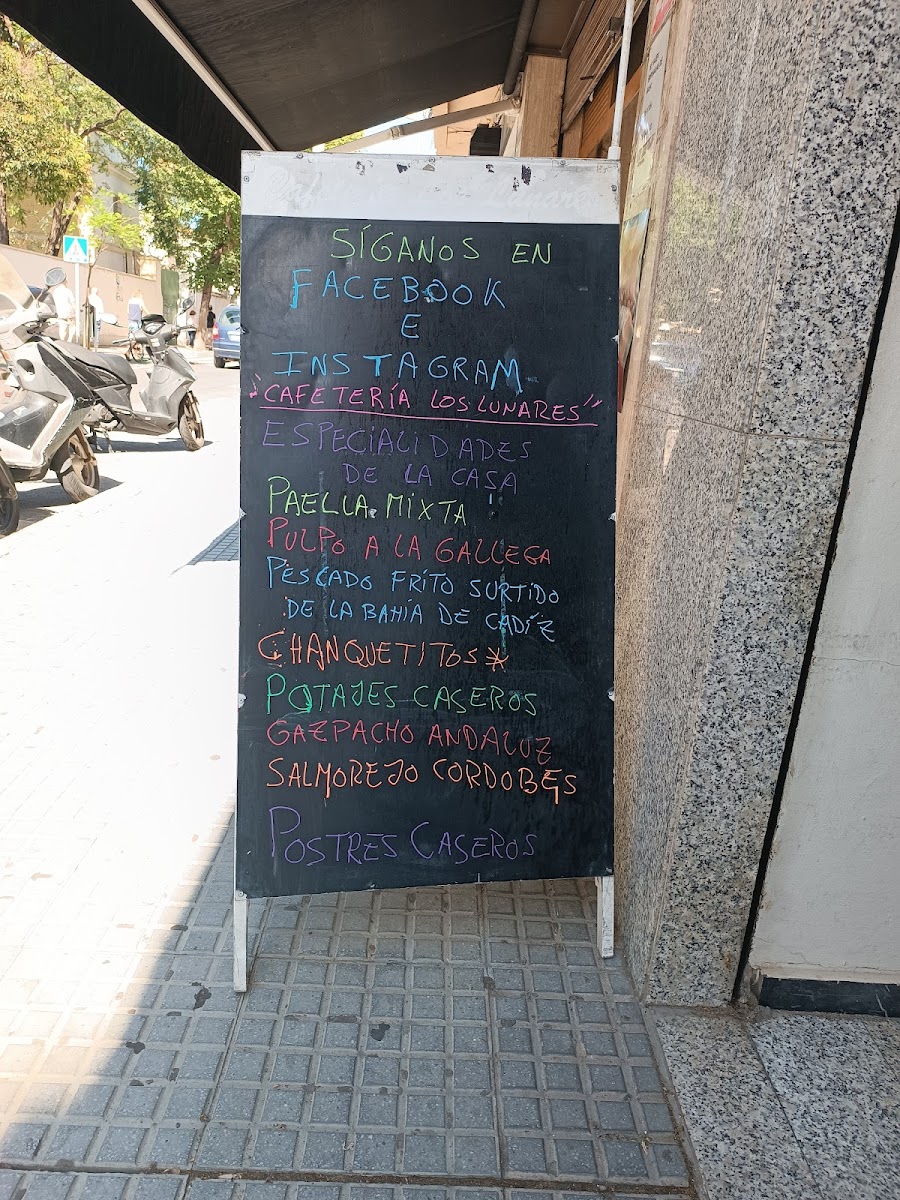 SÍGANOS EN
FACEBOOK
E
INSTAGRAM
"CAFETERÍA LOS LUNARES"
ESPECIALIDADES
DE LA CASA
PAELLA MIXTA
PULPO A LA GALLEGA
PESCADO FRITO SURTIDO
DE LA BAHÍA DE CADÍZ
CHANQUETITOS*
POTAJES CASEROS
GAZPACHO ANDALUZ
SALMOREJO CORDOBES
POSTRES CASEROS